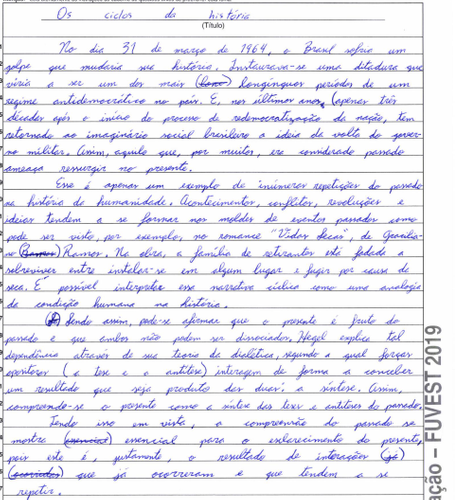 Os ciclos da história
(Título)
No dia 31 de março de 1964, o Brasil sofria um
golpe que mudaria sua história. Instaurava-se uma ditadura que
viria a ser um dos mais longínquos períodos de um
regime antidemocrático no país. E, nos últimos anos, (apenas três
décadas após o início do processo de redemocratização da nação, tem
retornado ao imaginário social brasileiro a ideia da volta do gover-
no militar. Assim, aquilo que, por muitos, era considerado passado
ameaça ressurgir no presente.
Esse é apenas um exemplo de inúmeras repetições do passado
na história da humanidade. Acontecimentos, conflitos, revoluções e
ideias tendem a se formar nos moldes de eventos passados como
pode ser visto, por exemplo, no romance "Vidas Secas", de Gracilia-
no Ramos. Na obra, a família de retirantes está fadada a
sobreviver entre instalar-se em algum lugar e fugir por causa da
seca. É possível interpretar essa narrativa cíclica como uma analogia
da condição humana na história.
Sendo assim, pode-se afirmar que o presente é fruto do
passado e que ambos não podem ser dissociados. Hegel explica tal
dependência através de sua teoria da dialética, segundo a qual forças
opositoras (a tese e a antítese) interagem de forma a conceber
um resultado que seja produto das duas: a síntese. Assim,
compreende-se o presente como a síntese das teses e antíteses do passado.
Tendo isso em vista, a compreensão do passado se
mostra essencial para o esclarecimento do presente,
pois este é, justamente, o resultado de interações
que já ocorreram e que tendem a se
repetir.
ação – FUVEST 2019